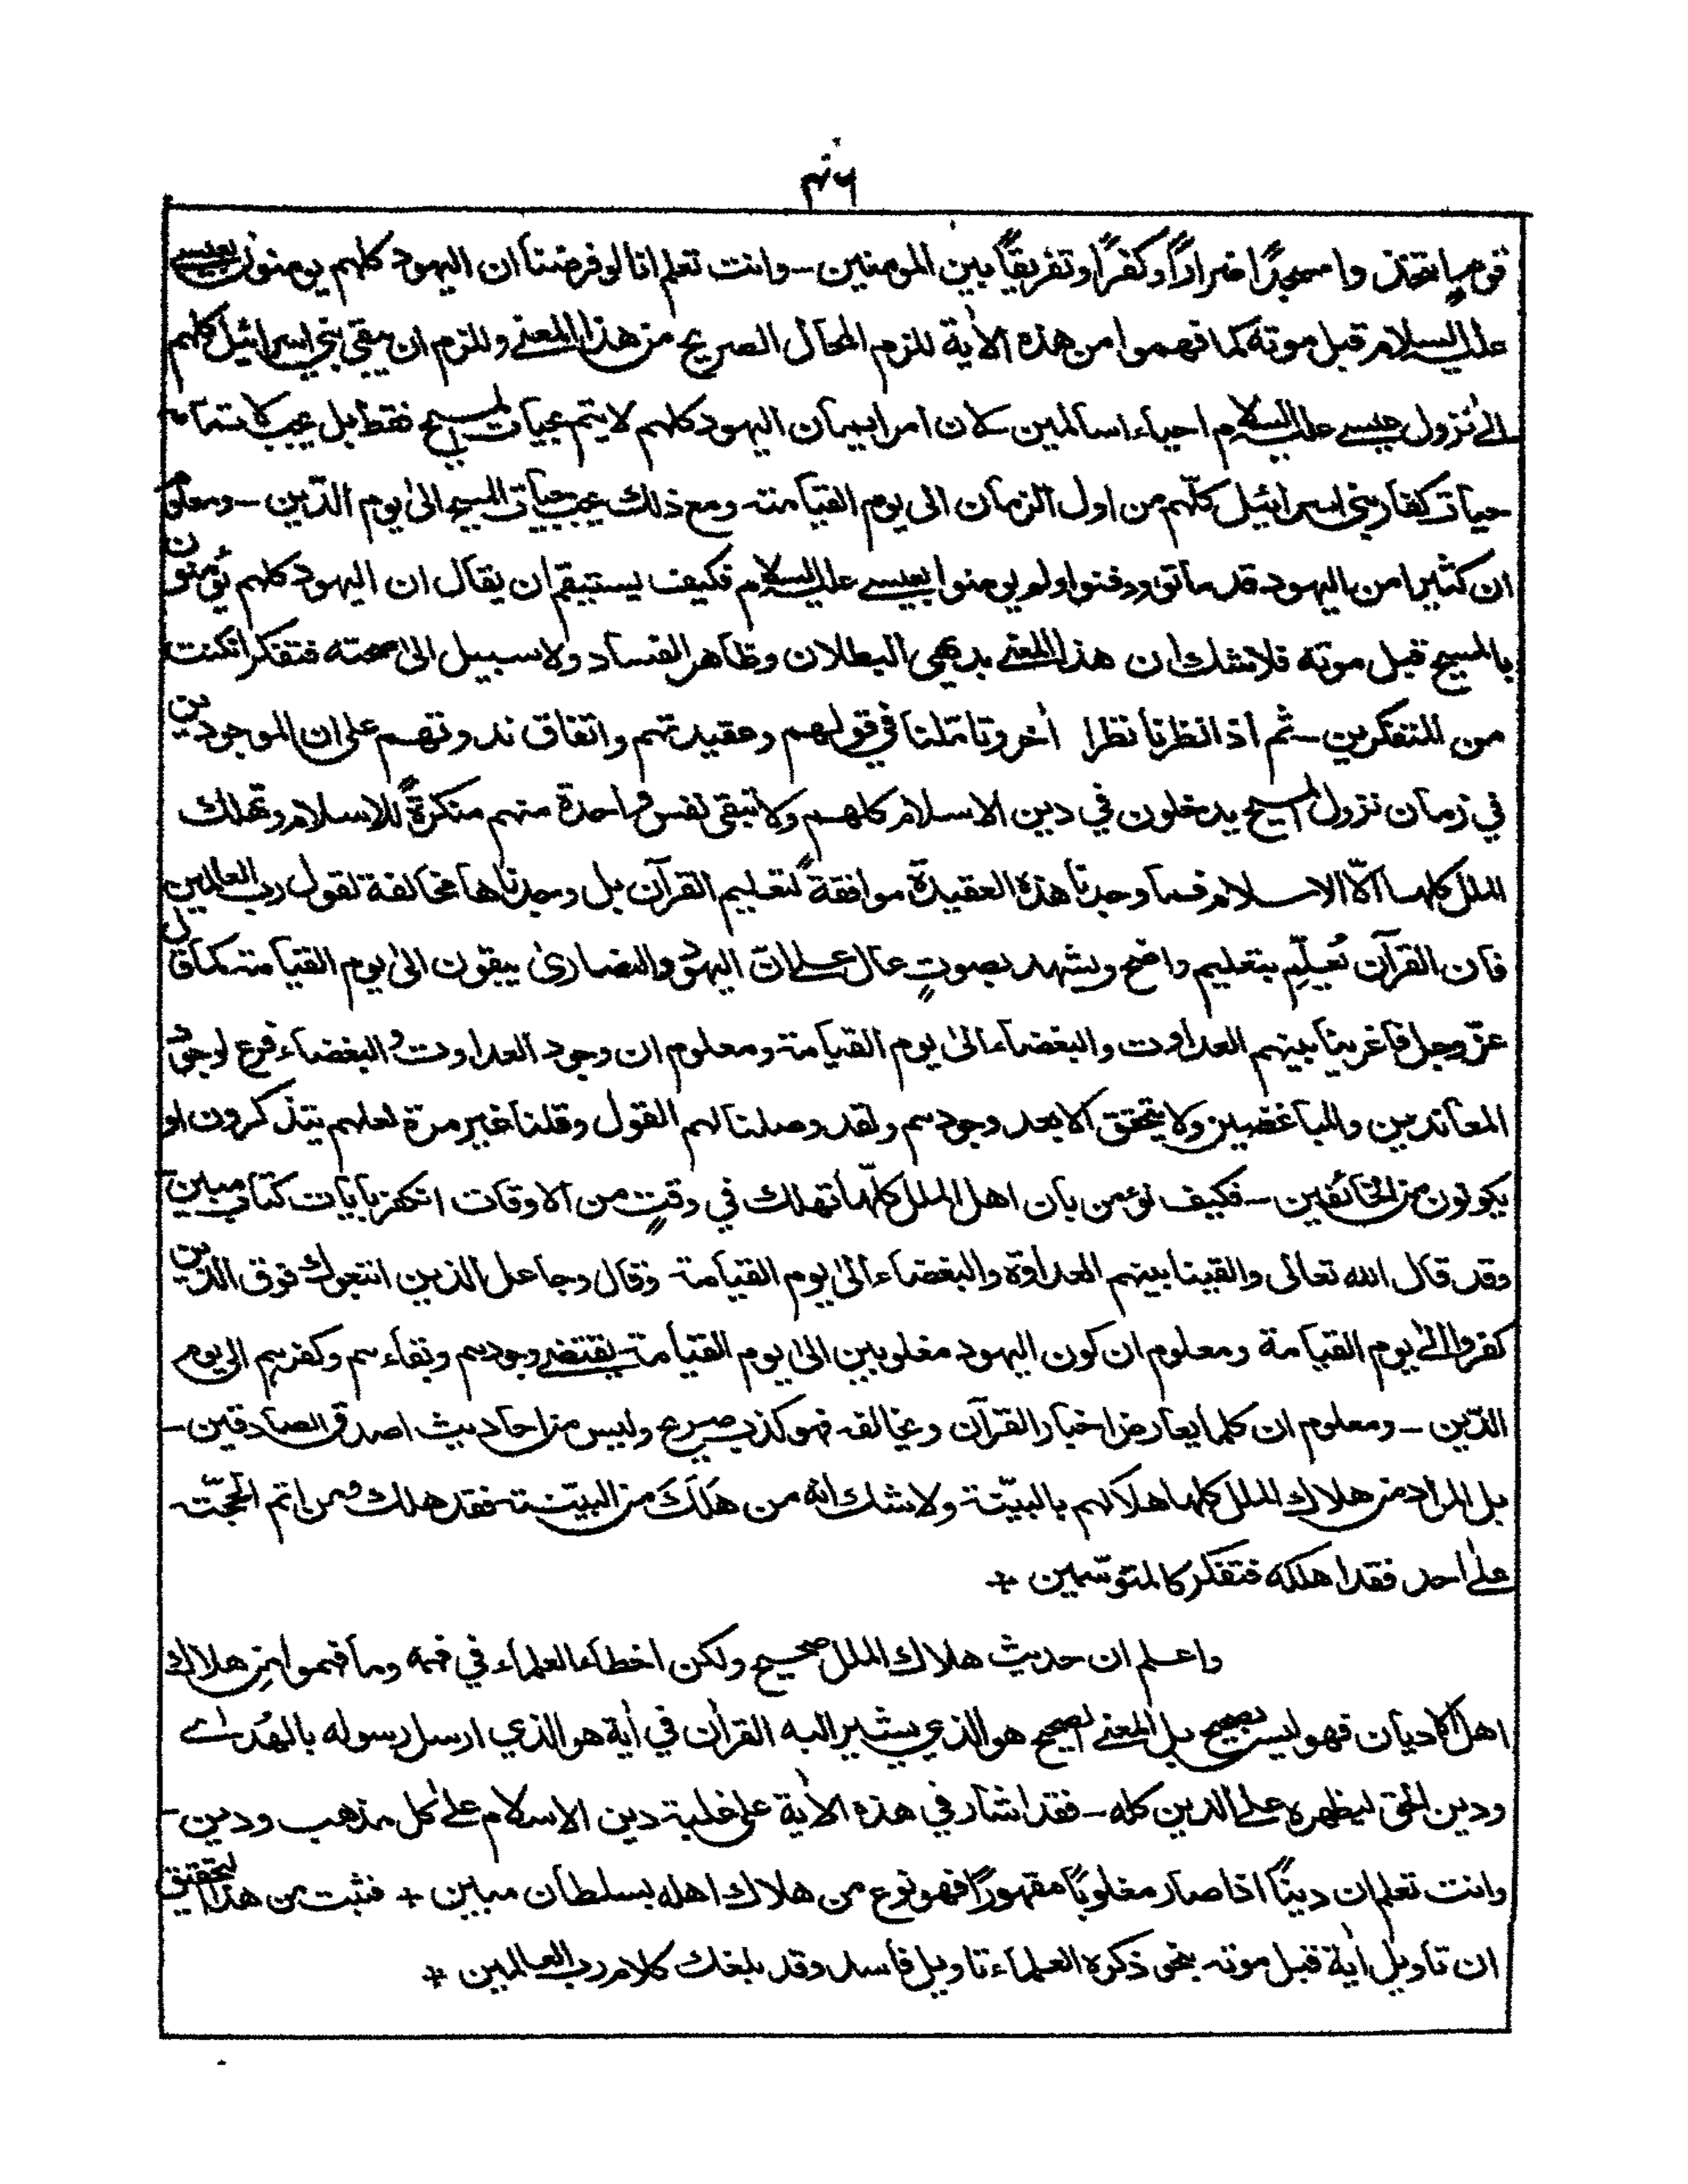 ۴۶
قومٍ اتخذوا مسجدًا ضرارًا وكفرًا وتفريقًا بين المومنين - وانت تعلم انا لو فرضنا ان اليهود كلهم يومنون بعيسى
عليه السلام قبل موته كما فهموا من هذه الأية للزم المحال الصريح من هذا المعنى وللزم ان يبقى بني اسرائيل كلهم
الى نزول عيسى عليه السلام احياء سالمين لان امر ايمان اليهود كلهم لا يتم بحيات المسيح فقط بل يجب لاتمامه
حيات كفار بني اسرائيل كلّهم من اول الزمان الى يوم القيامة ومع ذلك يجب حيات المسيح الى يوم الدّين - ومعلوم
ان كثيرا من اليهود قد ماتوا ودفنوا ولم يومنوا بعيسى عليه السلام فكيف يستيقم ان يقال ان اليهود كلهم يؤمنون
بالمسيح قبل موته فلا شك ان هذا المعنى بديهي البطلان وظاهر الفساد ولا سبيل الى صحته فتفكر ان كنت
من المتفكرين - ثم اذا نظرنا نظرا أخر وتاملنا في قولهم وعقيدتهم واتفاق ندوتهم على ان الموجودين
في زمان نزول المسيح يدخلون في دين الاسلام كلهم ولا تبقى نفس واحدة منهم منكرةً للاسلام وتهلك
الملل كلها الّا الاسلام فما وجدنا هذه العقيدة موافقةً لتعليم القرآن بل وجدناها مخالفة لقول رب العالمين
فان القرآن يُعلّم بتعليم واضح ويشهد بصوتٍ عال على ان اليهود والنصارى يبقون الى يوم القيامة كما قال
عزّ وجل فاغرينا بينهم العداوت والبغضاء الى يوم القيامة ومعلوم ان وجود العداوت والبغضاء فرع لوجود
المعاندين والمباغضين ولا يتحقق الا بعد وجودهم ولقد وصلنا لهم القول وقلنا غير مرة لعلهم يتذكرون او
يكونون من الخائفين - فكيف نؤمن بان اهل الملل كلّها تهلك في وقتٍ من الاوقات انكفر بآيات كتاب مبين
وقد قال الله تعالى والقينا بينهم العداوة والبغضاء الى يوم القيامة وقال وجاعل الذين اتبعوك فوق الذين
كفروا الى يوم القيامة ومعلوم ان كون اليهود مغلوبين الى يوم القيامة يقتضى وجودهم وبقاءهم وكفرهم الى يوم
الدّين - ومعلوم ان كلما يعارض اخبار القرآن ويخالفه فهو كذب صريح وليس من احاديث اصدق الصادقين -
بل المراد من هلاك الملل كلها هلاكهم بالبيّنة ولا شك انه من هَلَكَ من البيّنة فقد هلك ومن اتم الحجّة
على احد فقد اهلكه فتفكر كالمتوسّمين +
واعلم ان حديث هلاك الملل صحيح ولكن اخطاء العلماء في فهمه وما فهموا من هلاك
اهل الاديان فهو ليس بصحيح بل المعنى الصحيح هو الذي يشير اليه القرأن في أية هو الذي ارسل رسوله بالهُدى
ودين الحق ليظهره على الدين كله - فقد اشار في هذه الأية على غلبة دين الاسلام على كل مذهب ودين -
وانت تعلم ان دينًا اذا صار مغلوبًا مقهورًا فهو نوع من هلاك اهله بسلطان مبين + فثبت من هذا التحقيق
ان تأويل أية قبل موته بنحو ذكره العلماء تاويل فاسد وقد بلغك كلام رب العالمين +